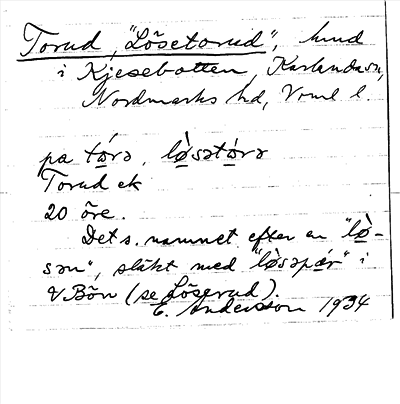 Torud, "Lösetorud", hmd
i Kjesebotten, Karlanda sn,
Nordmarks hd, Vrml l.
pa tó̱rə, lø̱̀sətó̱rə
Torud ek
20 öre.
Det s. namnet efter en "lø̱̀-
sən", släkt med "lø̱̀səpæ̱r" i
V Bön (se Löserud).
E. Andersson 1934